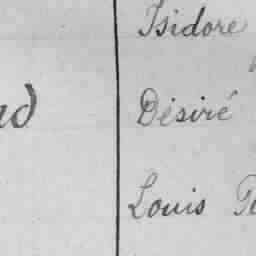 Isidore
Désiré
Louis